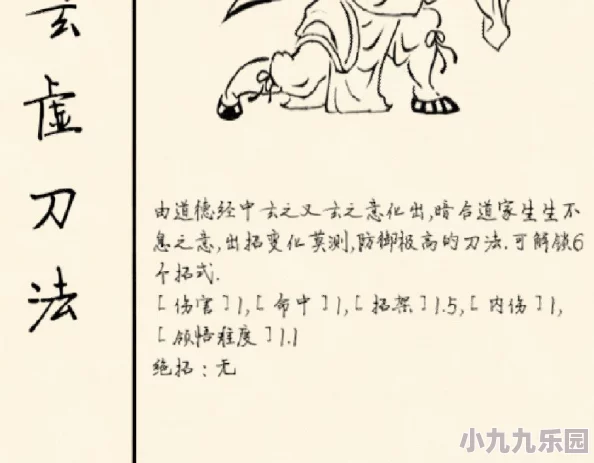 玄虚刀法
由道德经中玄之又玄之意化出,暗合道家生生不
息之意,出招变化莫测,防御极高的刀法.可解锁6
个招式.
[伤害]1,[命中]1,[招架]1.5,[内伤]1,
[领悟难度]1.1
绝招:无
小九九乐园